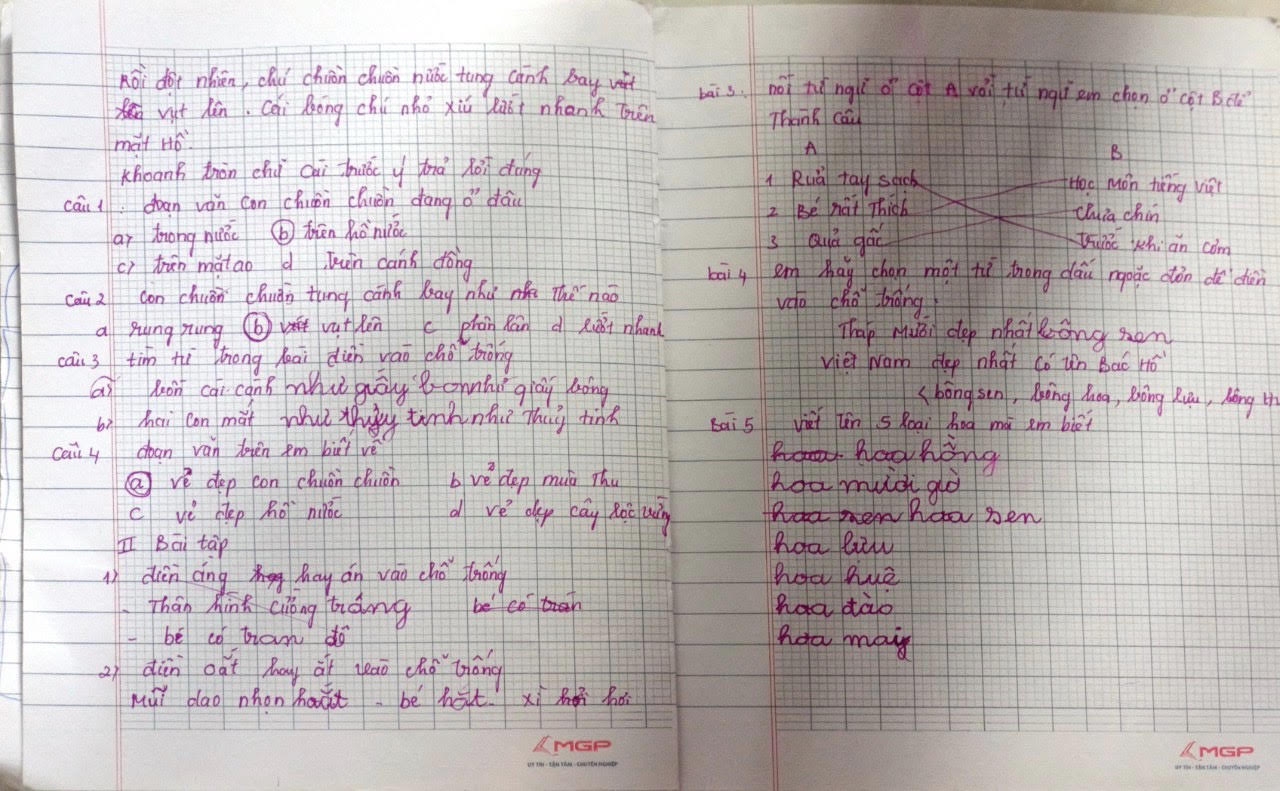 Rồi đột nhiên, chú chuồn chuồn nước tung cánh bay vút
vụt lên. Cái bóng chú nhỏ xíu lướt nhanh trên
mặt Hồ.
Khoanh tròn chữ cái trước ý trả lời đúng
câu 1. đoạn văn con chuồn chuồn đang ở đâu
a) trong nước (b) trên hồ nước
c) trên mặt ao d trên cánh đồng
câu 2 con chuồn chuồn tung cánh bay như thế nào
a rung rung (b) vụt lên c phân lân d lướt nhanh
câu 3 tìm từ trong bài điền vào chỗ trống
a) bốn cái cánh như giấy bóng như giấy bóng
b) hai con mắt như thủy tinh như Thuỷ tinh
câu 4 đoạn văn trên em biết về
(a) vẻ đẹp con chuồn chuồn b vẻ đẹp mùa Thu
c vẻ đẹp hồ nước d vẻ đẹp cây lộc vừng
II Bài tập
1) điền ăng hay án vào chỗ trống
- Thân hình cường tráng bé có trán
- bé có tran đô
2) điền oắt hay ắt vào chỗ trống
Mũi dao nhọn hoắt - bé hắt xì hơi
bài 3: nối từ ngữ ở cột A với từ ngữ em chọn ở cột B để
Thành câu
A B
1 Rửa tay sạch Học môn tiếng việt
2 Bé rất Thích chưa chín
3 Quả gấc trước khi ăn cơm
bài 4 em hãy chọn một từ trong dấu ngoặc đơn để điền
vào chỗ trống.
Tháp Mười đẹp nhất bông sen
việt Nam đẹp nhất có tên Bác Hồ
(bông sen, bông hoa, bông lựu,
Bài 5 viết tên 5 loại hoa mà em biết
hoa hoa hồng
hoa mười giờ
hoa sen hoa sen
hoa lưu
hoa huệ
hoa đào
hoa mai
MGP
UY TÍN - TẬN TÂM - CHUYÊN NGHIỆP
MGP
UY TÍN - TẬN TÂM - CHUYÊN NGHIỆP